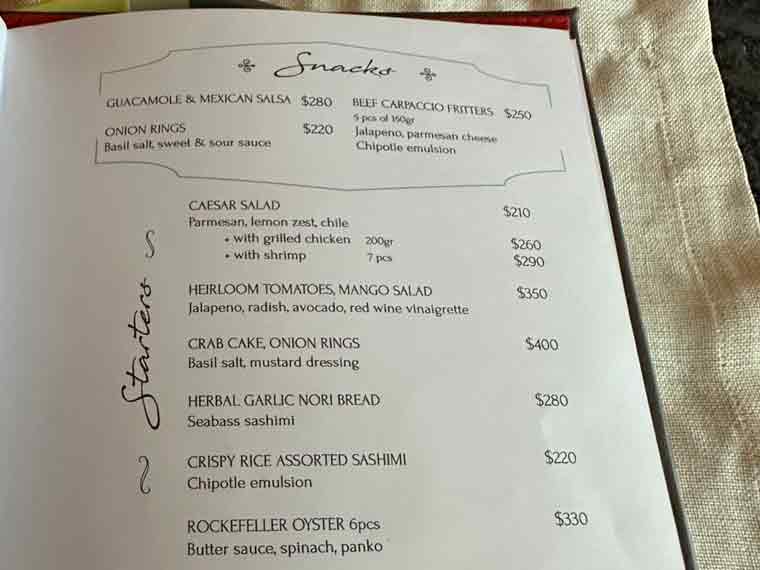 Snacks
GUACAMOLE & MEXICAN SALSA $280
ONION RINGS $220
Basil salt, sweet & sour sauce
BEEF CARPACCIO FRITTERS $250
5 pcs of 160gr
Jalapeno, parmesan cheese
Chipotle emulsion
Starters
CAESAR SALAD $210
Parmesan, lemon zest, chile
• with grilled chicken 200gr $260
• with shrimp 7 pcs $290
HEIRLOOM TOMATOES, MANGO SALAD $350
Jalapeno, radish, avocado, red wine vinaigrette
CRAB CAKE, ONION RINGS $400
Basil salt, mustard dressing
HERBAL GARLIC NORI BREAD $280
Seabass sashimi
CRISPY RICE ASSORTED SASHIMI $220
Chipotle emulsion
ROCKEFELLER OYSTER 6pcs $330
Butter sauce, spinach, panko